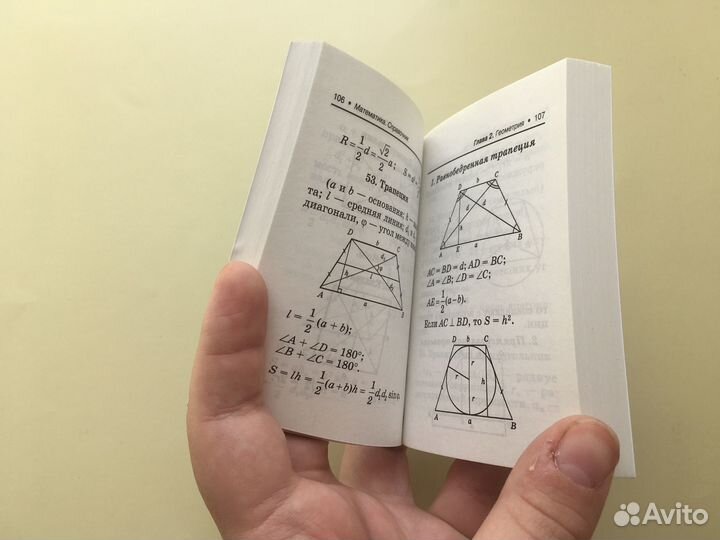 106 • Математика. Справочник
R = 1/2 d = √2/2 a; S =
53. Трапеция
(a и b — основания;
та; l — средняя линия; d₁
диагонали, φ — угол между
D b C
d₁
φ
h d₂
A a B
l = 1/2 (a + b);
∠A + ∠D = 180°;
∠B + ∠C = 180°.
S = lh = 1/2 (a + b)h = 1/2 d₁d₂ sin φ.
Глава 2. Геометрия • 107
1. Равнобедренная трапеция
D b C
d d
h
A E a B
AC = BD = d; AD = BC;
∠A = ∠B; ∠D = ∠C;
AE = 1/2 (a–b).
Если AC ⊥ BD, то S = h².
D b C
r
r h
r
A a B
Avito